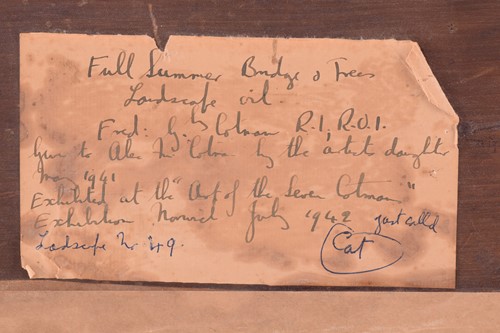 Full Summer Bridge & Trees
Landscape oil.
Fred: G. Cotman R.I, R.O.I.
Given to Alec M Cotman by the artists daughter
May 1941
Exhibited at the "Art of the Seven Cotmans"
Exhibition Norwich July 1942
Ladscape No 49. Cat